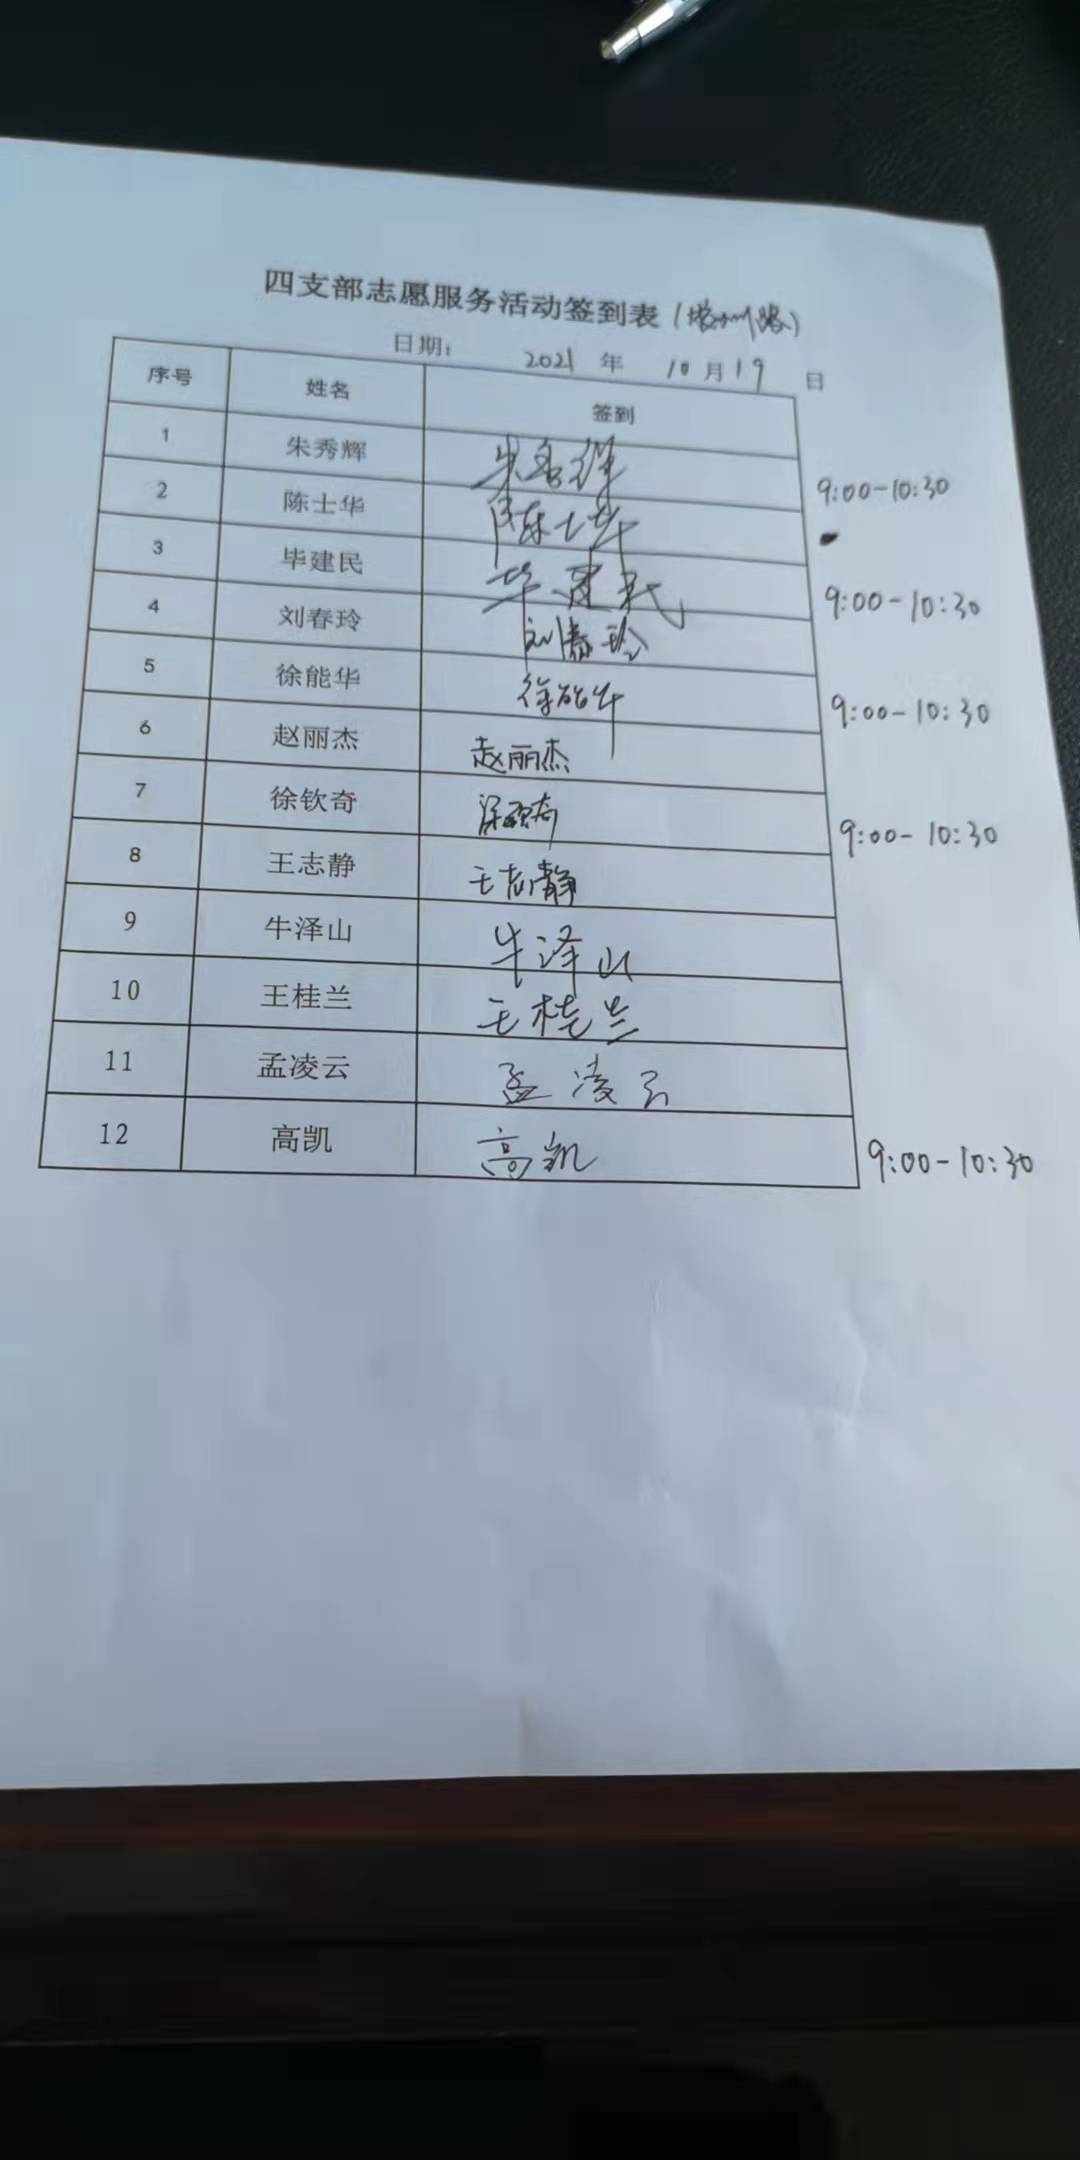 四支部志愿服务活动签到表（ 路）
日期： 2021 年 10 月 19 日
序号 姓名 签到
1 朱秀辉 朱秀辉 9:00-10:30
2 陈士华 陈士华
3 毕建民 毕建民 9:00-10:30
4 刘春玲 刘春玲
5 徐能华 徐能华 9:00-10:30
6 赵丽杰 赵丽杰
7 徐钦奇 徐钦奇 9:00-10:30
8 王志静 王志静
9 牛泽山 牛泽山
10 王桂兰 王桂兰
11 孟凌云 孟凌云
12 高凯 高凯 9:00-10:30